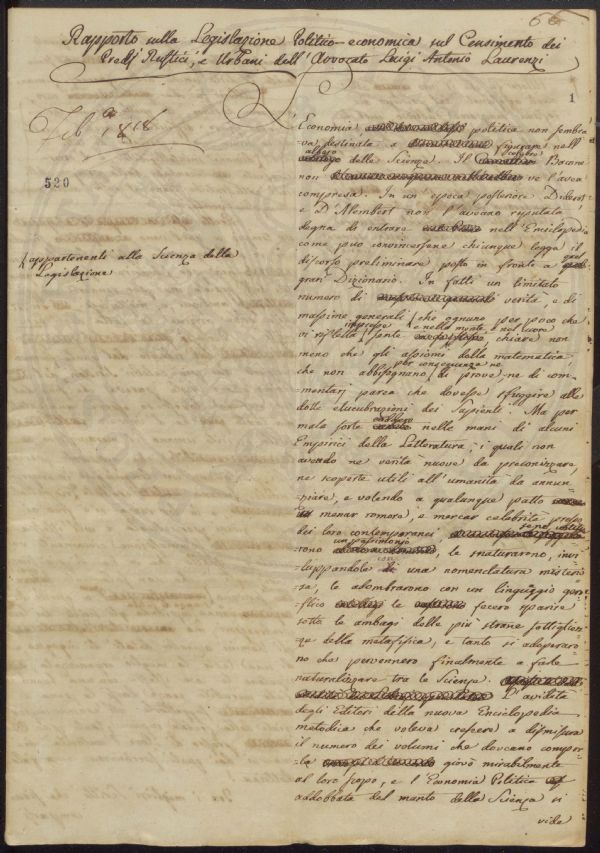 Rapporto sulla Legislazione Politico-economica sul Censimento dei
Predj Rustici, e Urbani dell'Avvocato Luigi Antonio Laurenzi
1
Feb.º 1818
530
appartenenti alla Scienza della
Legislazione
L'Economia politica non sembra
-va destinata a figurare nell'
albero delle Scienze. Il celebre Bacone
non ve l'avea
compresa. In un'epoca posteriore Diderot
e D'Alembert non l'aveano reputata
degna di entrare nell'Enciclopedia
come può convincersene chiunque legga il
discorso preliminare posto in fronte a quel
gran Dizionario. In fatti un limitato
numero di verità, e di
massime generali (che ognuno per poco che
vi rifletta sente impresse e nella mente, e nel cuore chiare non
meno che gli assiomi della matematica
che non abbisognano per conseguenza ne di prove, ne di com-
mentarj parea che dovesse sfuggire alle
dotte elucubrazioni dei Sapienti. Ma per
mala sorte caddero nelle mani di alcuni
Empirici della Letteratura, i quali non
avendo ne verità nuove da preconizzare,
ne scoperte utili all'umanità da annun-
ziare, e volendo a qualunque patto
menar romore, e mercar celebrità presso
dei loro contemporanei, se ne costitui-
rono un patrimonio, le snaturarono, invi-
luppandole con una nomenclatura misterio-
sa, le adombrarono con un linguaggio gon-
fio le fecero sparire
sotto le ambagi delle più strane sottigliez-
ze della metafisica, e tanto si adoperaro-
no che pervennero finalmente a farle
naturalizzare tra le Scienze. L'avidità
degli Editori della nuova Enciclopedia
metodica che voleva crescere a dismisura
il numero dei volumi che doveano compor-
la giovò mirabilmente
al loro scopo, e l'Economia Politica
addobbata del manto della Scienza si
vide